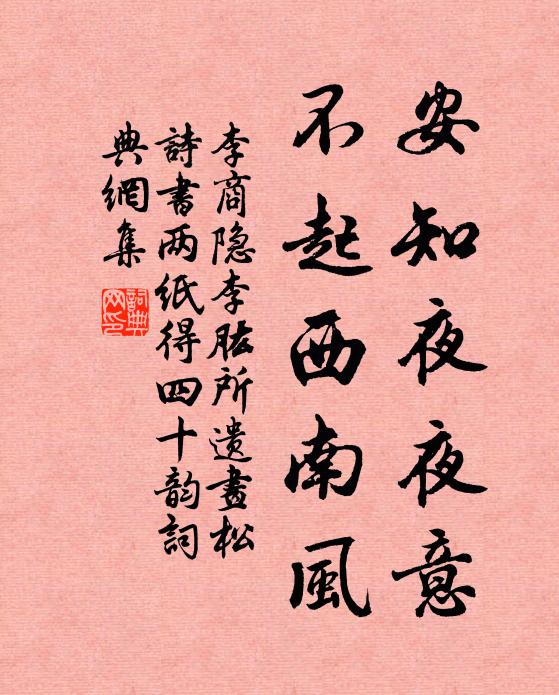 安知夜夜意
不起西南風
李商隐李肱所遺畫松
詩書两紙得四十韵詞
典網集
詞典网印